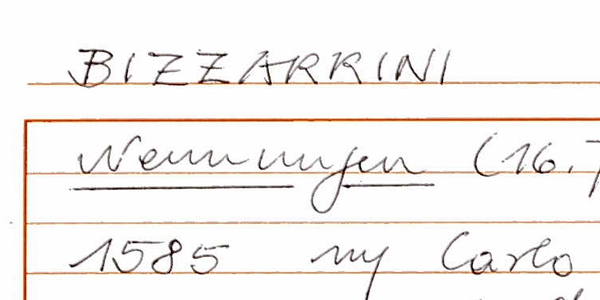 BIZZARRINI
Nennungen (16.
1585 Carlo